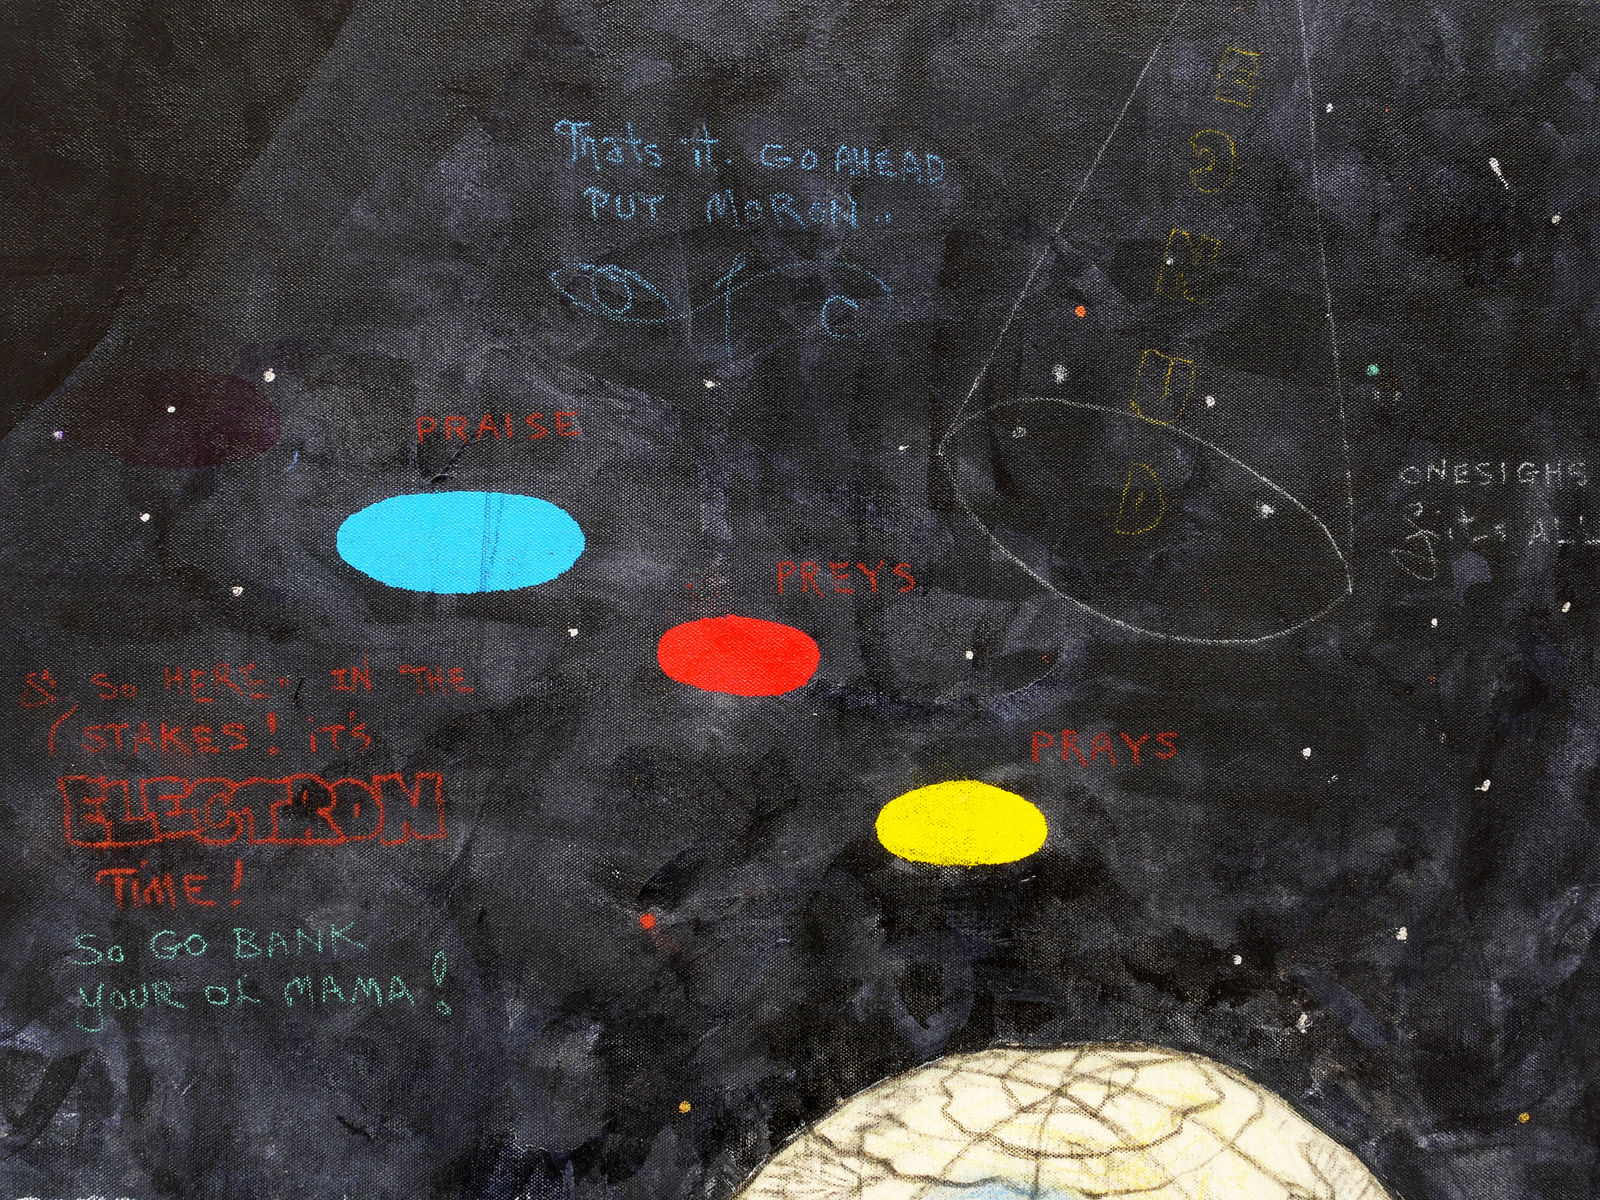 Thats it. GO AHEAD
PUT MORON..
PRAISE
ONESIGHS
fits ALL
PREYS
So HERE.. IN THE
(STAKES! iT's
PRAYS
ELECTRON
TiME!
So GO BANK
YOUR OL MAMA!